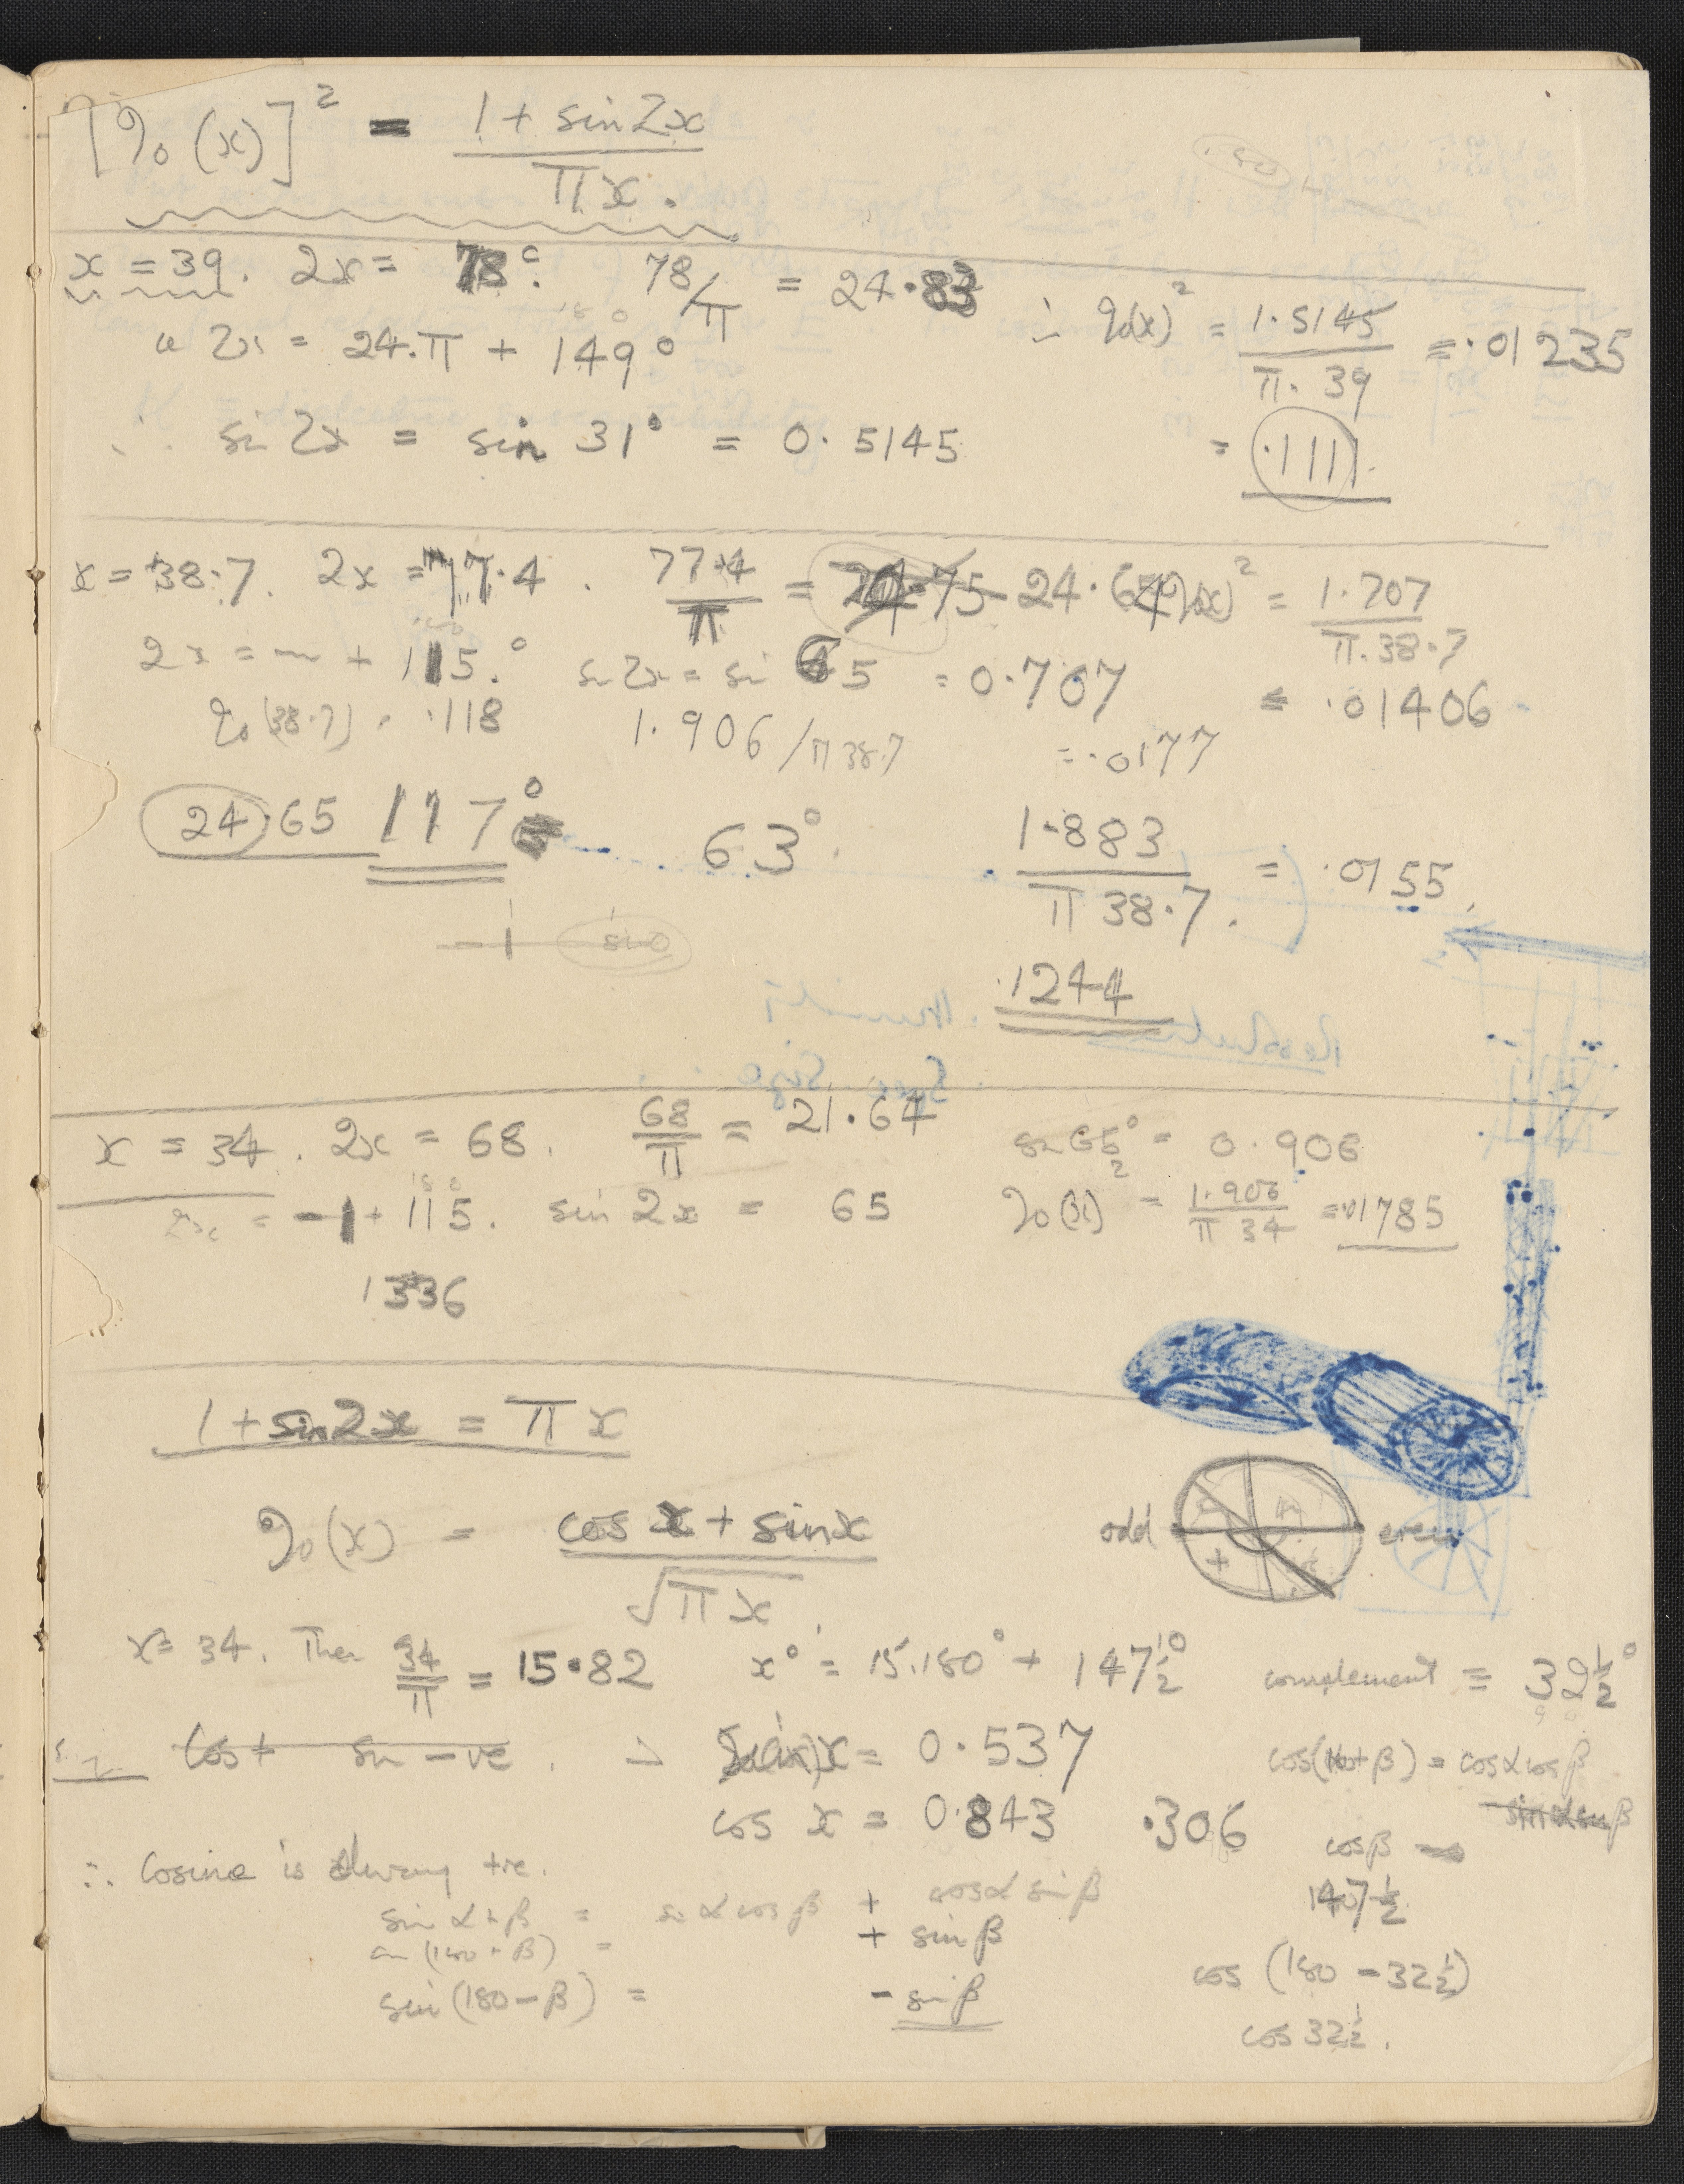 [J₀(x)]² = 1 + sin 2x / πx.
x = 39. 2x = 78°. 78/π = 24.83
∴ J₀(x)² = 1.5145 / π. 39 = .01235
2x = 24.π + 149°
∴ sin 2x = sin 31° = 0.5145
= .111
x = 38.7. 2x = 77.4. 77.4/π = 24.75 24.64
J₀(x)² = 1.707 / π.38.7
2x = + 115.° sin 2x = sin 65 = 0.707
= .01406
J₀(38.7) = .118 1.906/π 38.7 = .0177
24.65 117° 63° 1.883 / π 38.7. = .0155
-1 sin
.1244
x = 34. 2x = 68. 68/π = 21.64 sin 65° = 0.906
2x = -1 + 115. sin 2x = 65 J₀(x)² = 1.906 / π 34 = .01785
1336
1 + sin 2x = π x
J₀(x) = cos x + sin x / √πx
odd even
x = 34. Then 34/π = 15.82 x° = 15.180° + 147½° complement = 32½°
Cos + sin -ve. sin x = 0.537
cos(180+β) = cosα cosβ
sinα sinβ
cos x = 0.843 .306
cosβ
∴ Cosine is always +ve.
147½
sin α+β = sin α cos β + cosα sin β
sin (180+β) = + sin β
cos (180 - 32½)
sin (180-β) = - sin β
cos 32½.